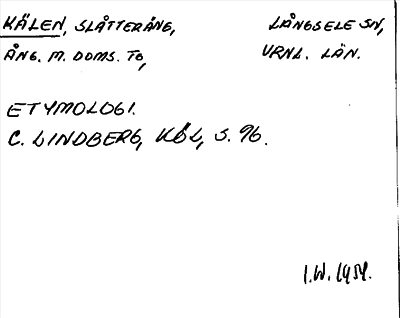 KÄLEN, SLÅTTERÄNG, LÅNGSELE SN,
ÅNG. M. DOMS. TG, VRNL. LÄN.
ETYMOLOGI.
C. LINDBERG, KÖL, S. 96.
I.W. 1954.